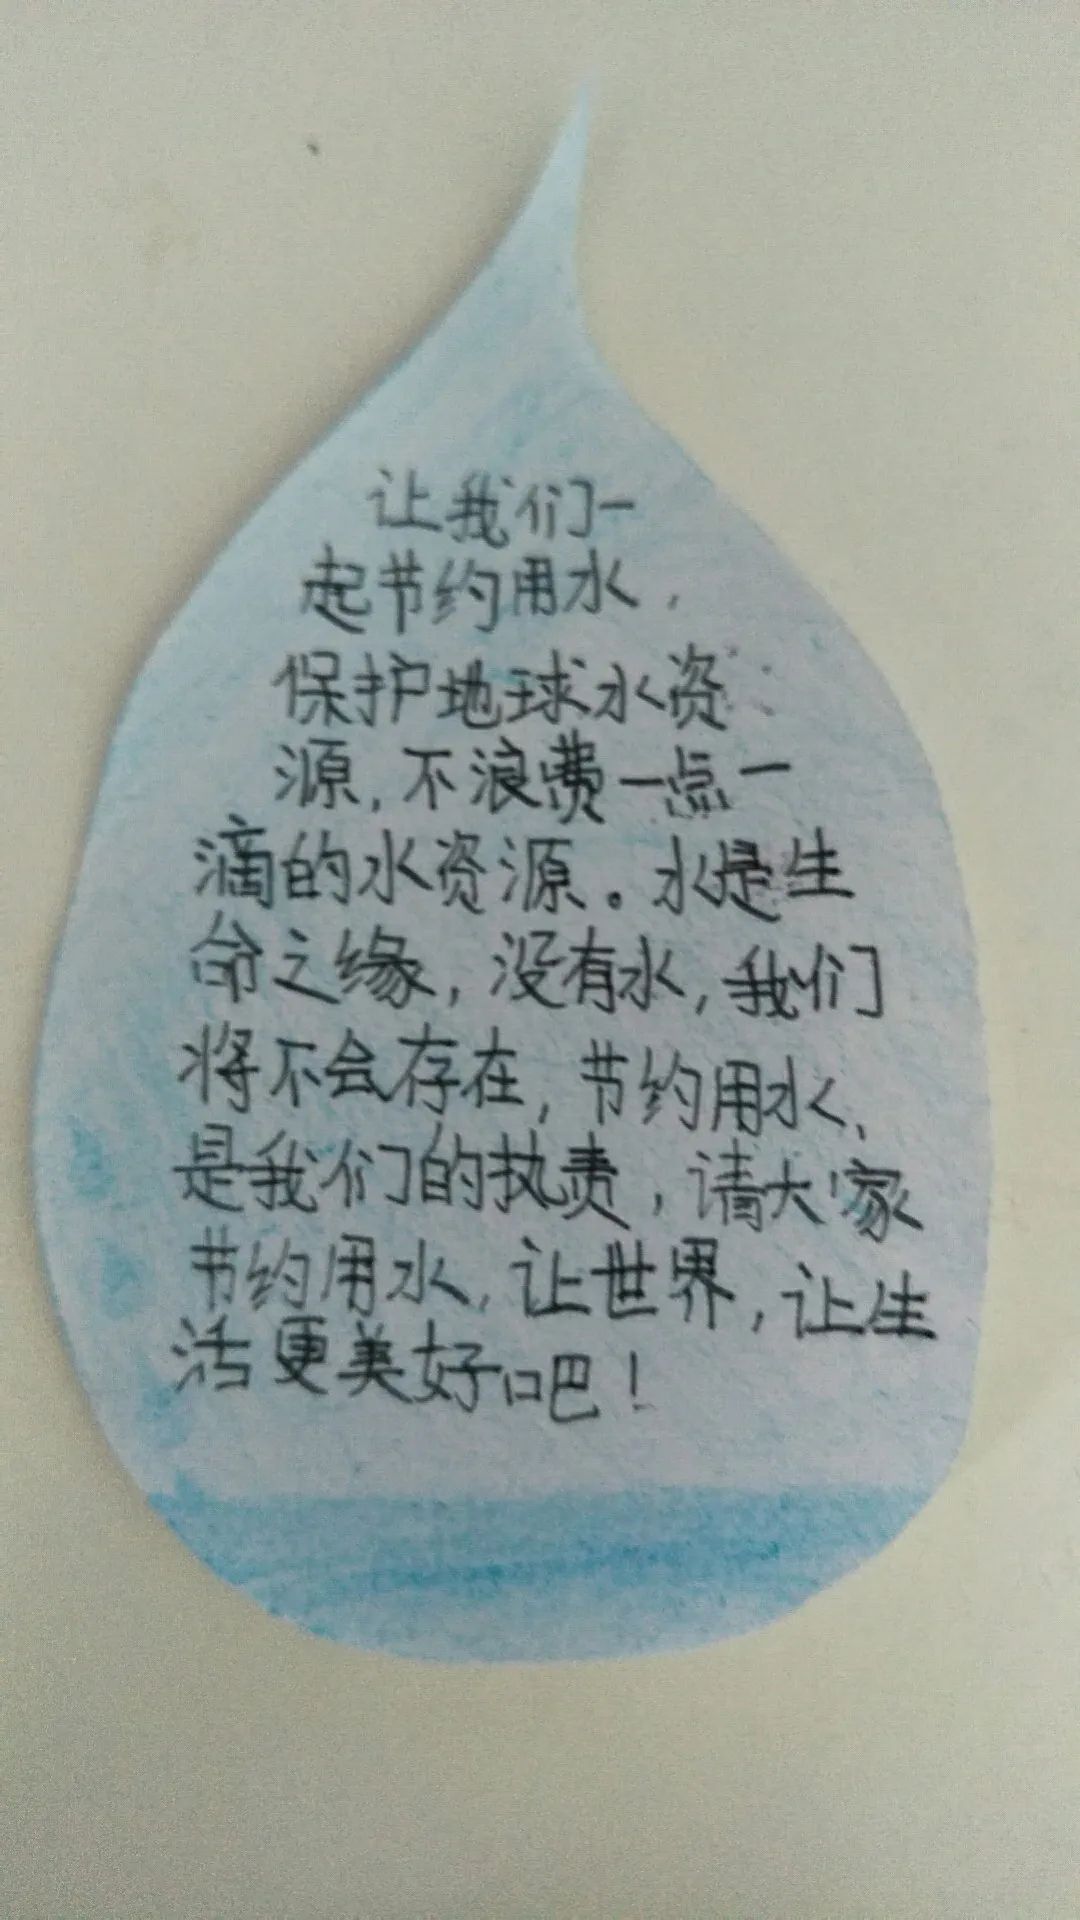 让我们一
起节约用水，
保护地球水资
源，不浪费一点一
滴的水资源。水是生
命之缘，没有水，我们
将不会存在，节约用水，
是我们的执责，请大家
节约用水，让世界，让生
活更美好吧！